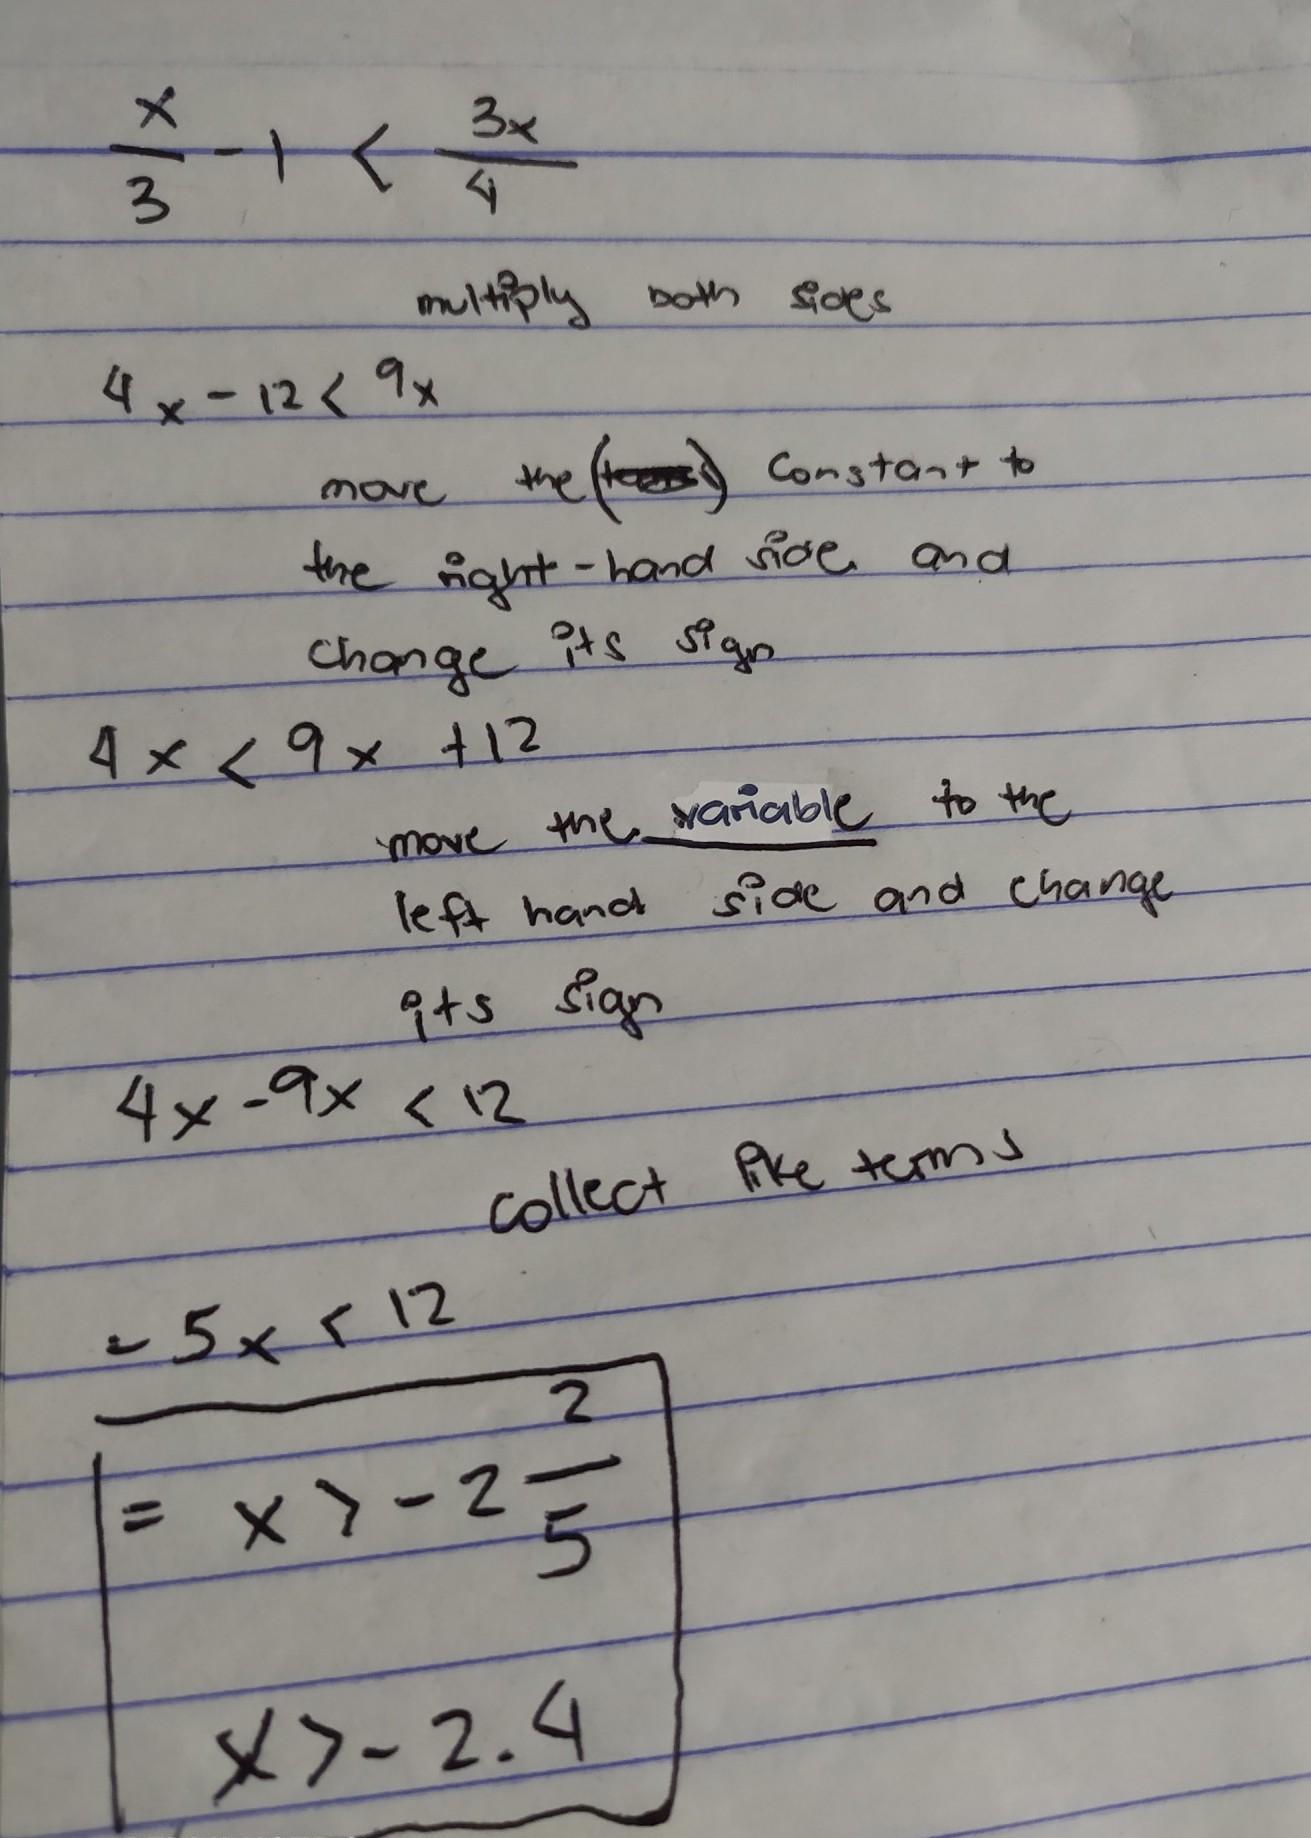 x/3 - 1 < 3x/4
multiply both sides
4x - 12 < 9x
move the () constant to
the right-hand side and
change its sign
4x < 9x +12
move the variable to the
left hand side and change
its sign
4x - 9x < 12
collect like terms
- 5x < 12
= x > - 2 2/5
x > - 2.4